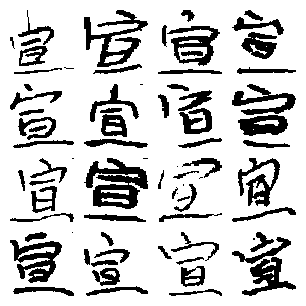 宣宣宣宣
宣宣宣宣
宣宣宣宣
宣宣宣宣